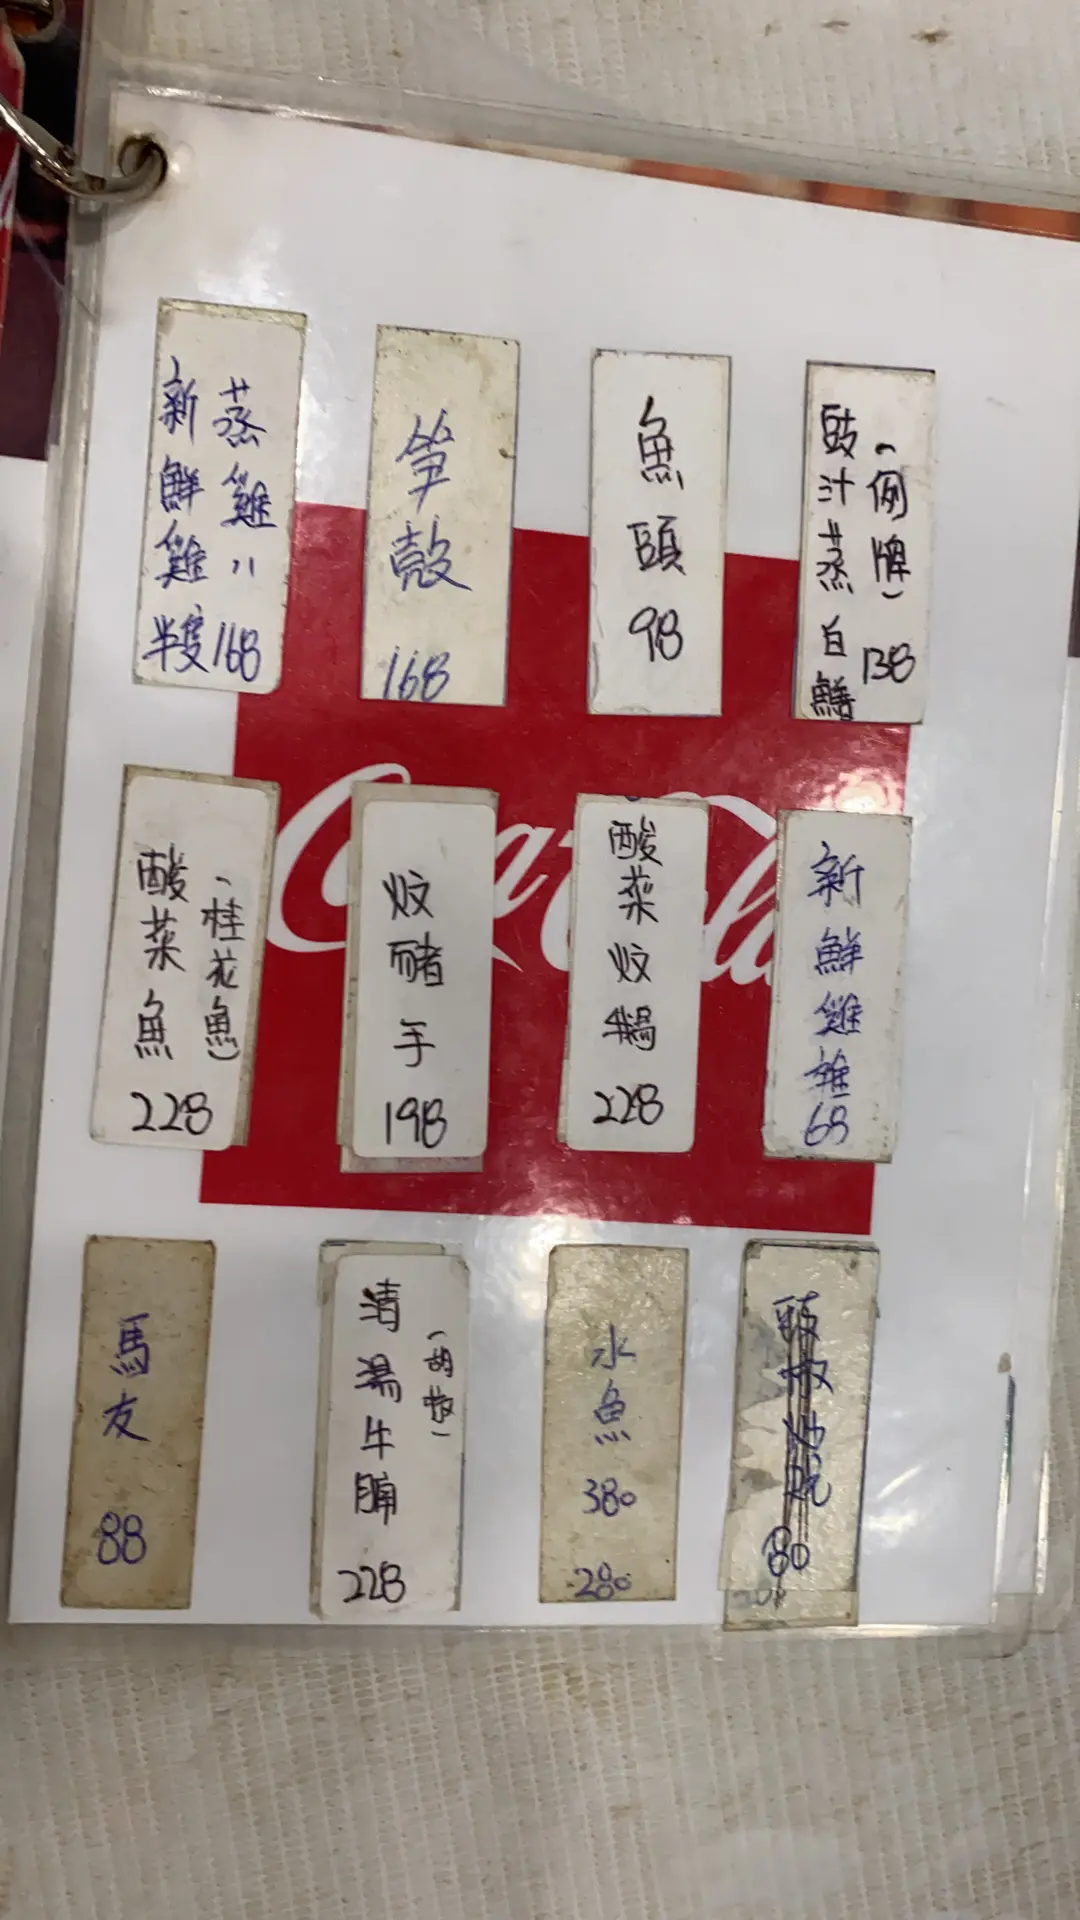 蒸雞
新鮮雞半隻 168
筍殼
168
魚頭
98
豉汁蒸白鱔
(例牌)
138
酸菜魚
(桂花魚)
228
炆豬手
198
酸菜炆鵝
228
新鮮雞雜
68
馬友
88
清湯牛腩
228
水魚
380
280
80
Coca-Cola